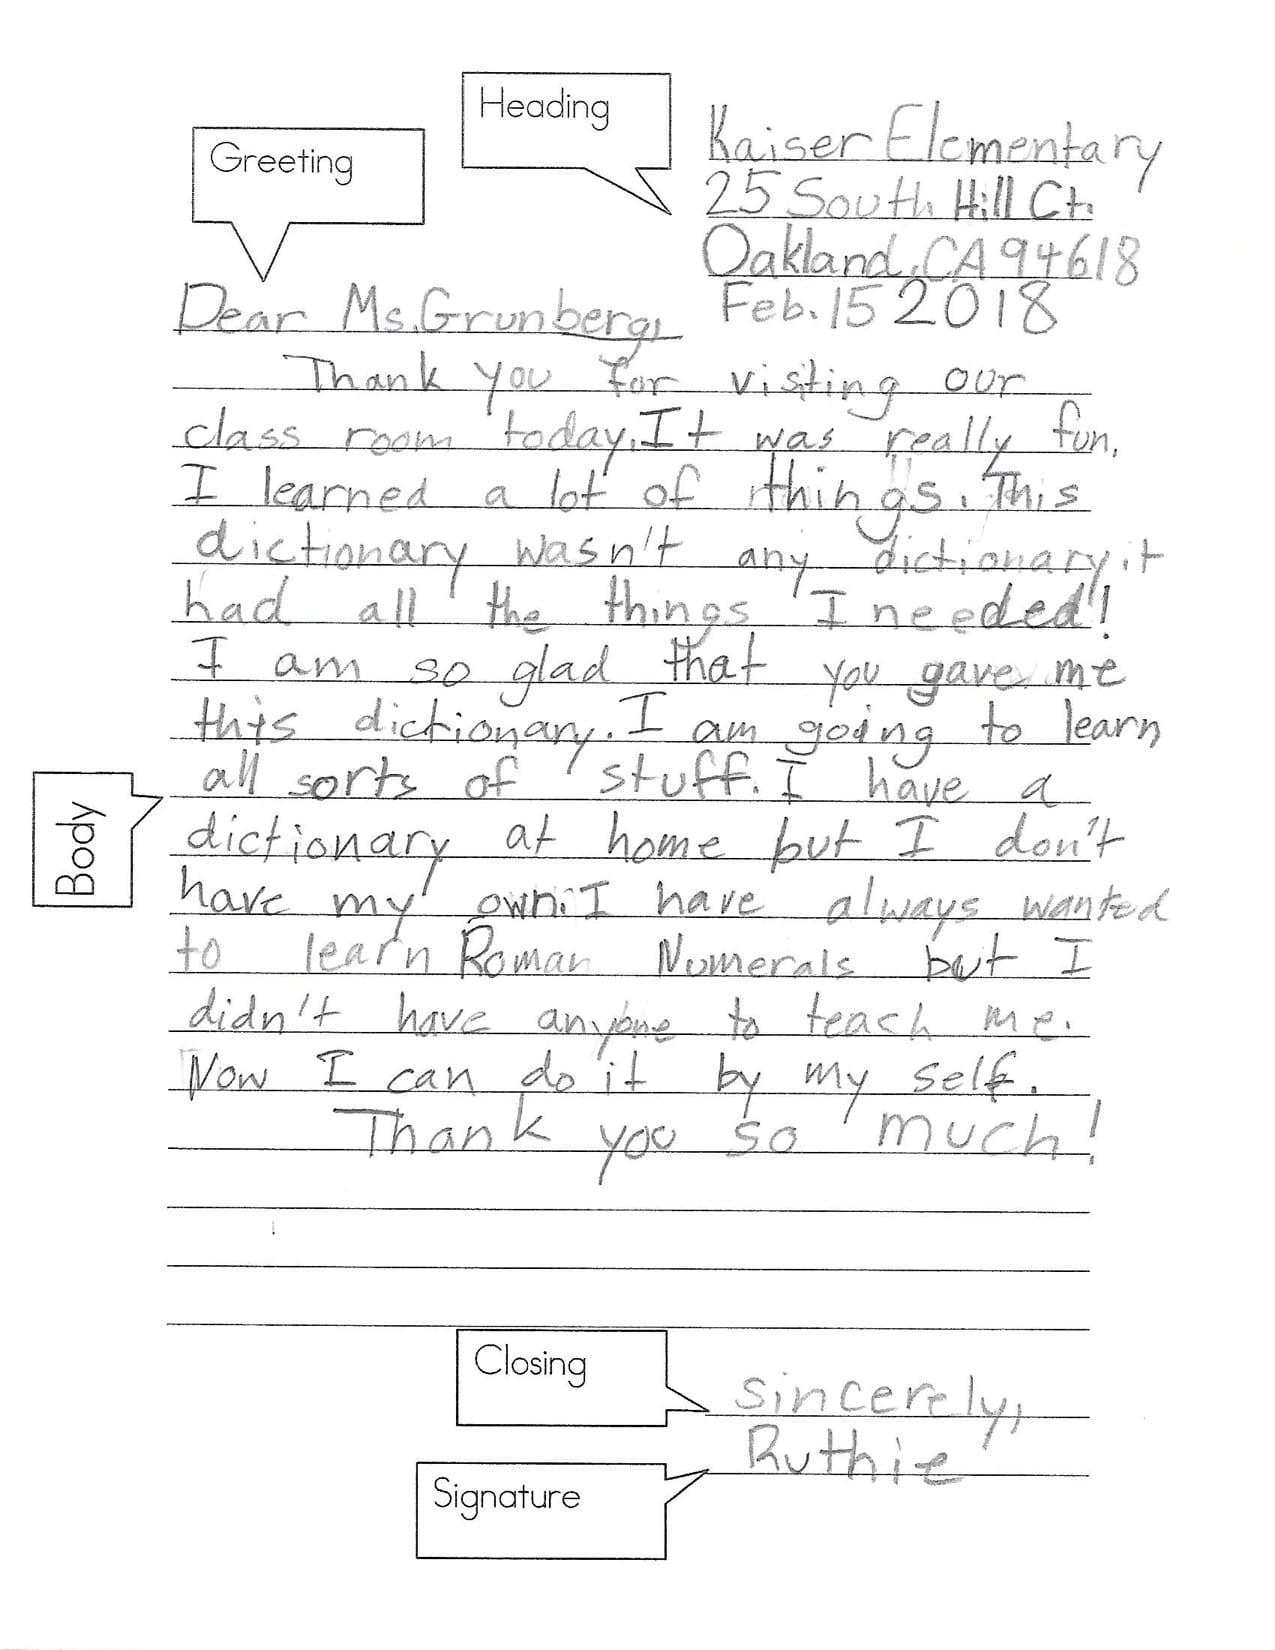 Heading
Kaiser Elementary
25 South Hill Ct.
Oakland, CA 94618
Feb. 15 2018
Greeting
Dear Ms. Grunberg,
Thank you for visiting our
class room today. It was really fun.
I learned a lot of things. This
dictionary wasn't any dictionary, it
had all the things I needed!
I am so glad that you gave me
this dictionary. I am going to learn
all sorts of stuff. I have a
Body
dictionary at home but I don't
have my own. I have always wanted
to learn Roman Numerals but I
didn't have anyone to teach me.
Now I can do it by my self.
Thank you so much!
Closing
sincerely,
Ruthie
Signature